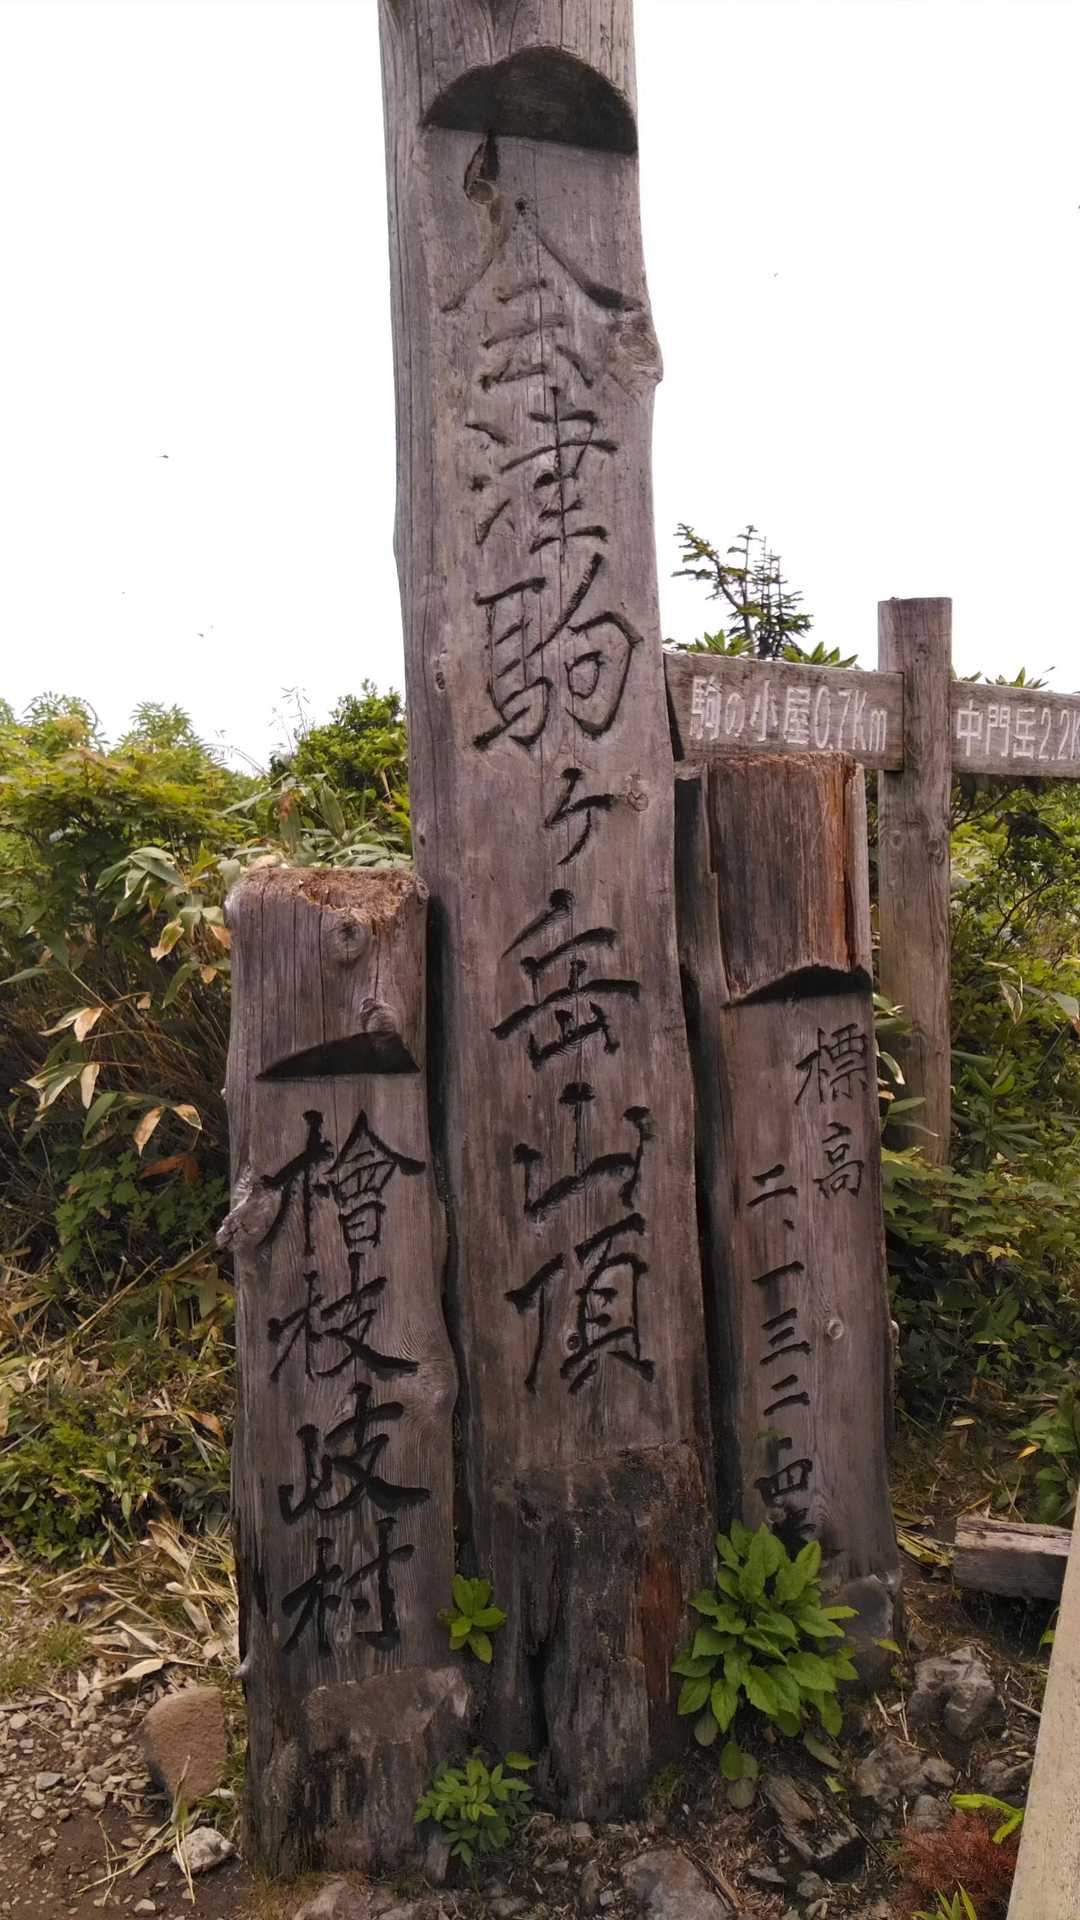 会津駒ヶ岳山頂
檜枝岐村
標高
二、一三二、四米
駒の小屋0.7Km
中門岳2.2K